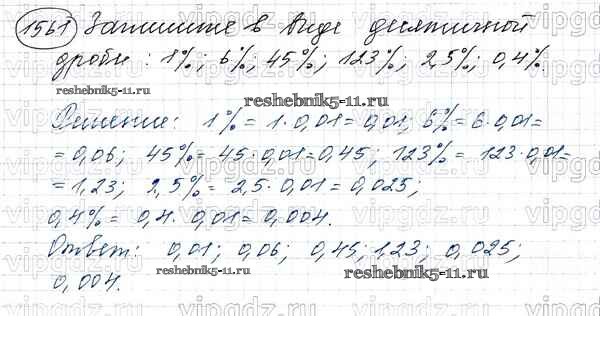 1561 Запишите в виде десятичной
дроби: 1%; 6%; 45%; 123%; 2,5%; 0,4%.
reshebnik5-11.ru
Решение: 1% = 1·0,01 = 0,01; 6% = 6·0,01=
= 0,06; 45% = 45·0,01=0,45; 123% = 123·0,01=
= 1,23; 2,5% = 2,5·0,01 = 0,025;
0,4% = 0,4·0,01 = 0,004.
Ответ: 0,01; 0,06; 0,45; 1,23; 0,025;
reshebnik5-11.ru reshebnik5-11.ru
0,004.
vipgdz.ru